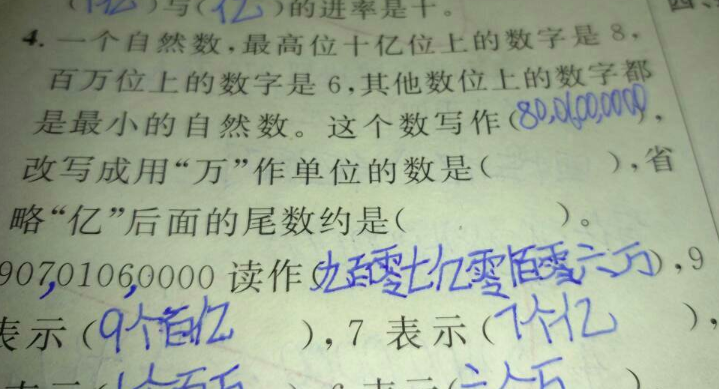 (亿)与(亿)的进率是十。
4. 一个自然数,最高位十亿位上的数字是8,
百万位上的数字是6,其他数位上的数字都
是最小的自然数。这个数写作(80,0600,0000),
改写成用“万”作单位的数是( ),省
略“亿”后面的尾数约是( )。
907,0106,0000 读作(九百零七亿零百零六万),9
表示(9个百亿),7 表示(7个亿),